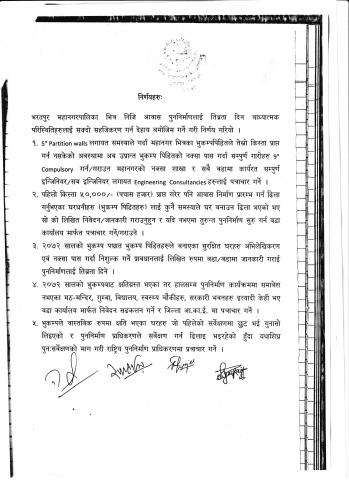 निर्णयहरुः
भरतपुर महानगरपालिका भित्र निजि आवास पुननिर्माणलाई तिब्रता दिन बाध्यात्मक
परिस्थितिहरुलाई सक्दो सहजिकरण गर्न देहाय बमोजिम गर्ने गरी निर्णय गरियो ।
१. 5" Partition walls लगायत समस्याले गर्दा महानगर भित्रका भुकम्पपिडितले तेस्रो किस्ता प्राप्त
गर्न नसकेको अवस्थामा अब उप्रान्त भुकम्प पिडितको नक्सा पास गर्दा सम्पुर्ण गारोहरु 9"
Compulsory गर्न/गराउन महानगरको नक्सा शाखा र सबै वडामा कार्यरत सम्पुर्ण
इन्जिनियर/सब इन्जिनियर लगायत Engineering Consultancies हरुलाई पत्राचार गर्ने ।
२. पहिलो किस्ता रु ५०,०००/- (पचास हजार) प्राप्त गरेर पनि आवास निर्माण प्रारम्भ गर्न ढिला
गर्नुभएका घरधनीहरु (भुकम्प पिडितहरु) लाई कुनै समस्याले घर बनाउन ढिला भएको भए
सो को लिखित निवेदन/जानकारी गराउनुहुन र यदि नभएमा तुरुन्त पुननिर्माण सुरु गर्न वडा
कार्यालय मार्फत पत्राचार गर्ने/गराउने ।
३. २०७२ सालको भुकम्प पश्चात भुकम्प पिडितहरुले बनाएका सुरक्षित घरहरु अभिलेखिकरण
एवं नक्सा पास गर्दा निशुल्क गर्ने प्रावधानलाई लिखित रुपमा वडा/वडामा जानकारी गराई
पुननिर्माणलाई तिब्रता दिने ।
४. २०७२ सालको भुकम्पबाट क्षतिग्रस्त भएका तर हालसम्म पुननिर्माण कार्यक्रममा समावेस
नभएका मठ-मन्दिर, गुम्बा, विद्यालय, स्वस्थ्य चौकीहरु, सरकारी भवनहरु इत्यादी केही भए
वडा कार्यालय मार्फत निवेदन सङकलन गर्ने र जिल्ला आ.का.ई. मा पत्राचार गर्ने ।
५. भुकम्पले वास्तविक रुपमा क्षति भएका घरहरु जो पहिलेको सर्वेक्षणमा छुट भई गुनासो
लिइएको र पुननिर्माण प्राधिकरणले सर्वेक्षण गर्न ढिलाइ भइरहेको हुँदा यथाशिघ्र
पुनःसर्वेक्षणको माग गरी राष्ट्रिय पुननिर्माण प्राधिकरणमा पत्राचार गर्ने ।